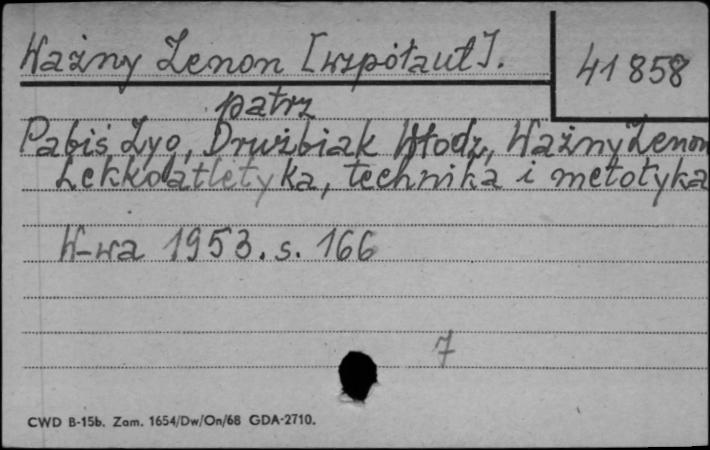 Ważny Zenon [współaut].
41858
patrz
Pabiś Zyg, Drużbiak Włodz, Ważny Zenon
Lekkoatletyka, technika i metotyka
W-wa 1953. s. 166
7
CWD B-15b. Zam. 1654/Dw/On/68 GDA-2710.